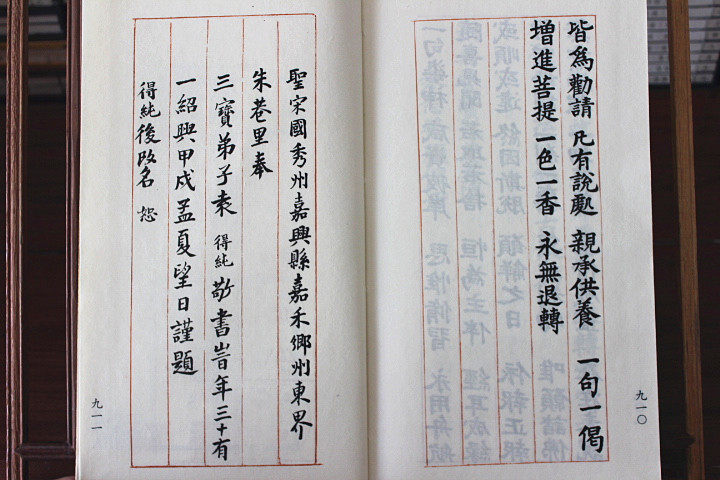 皆為勸請 凡有說處 親承供養 一句一偈
增進菩提 一色一香 永無退轉
九一〇
聖宋國秀州嘉興縣嘉禾鄉州東界
朱巷里奉
三寶弟子袁 得純 敬書旹年三十有
一紹興甲戍孟夏望日謹題
得純後改名 恕
九一一